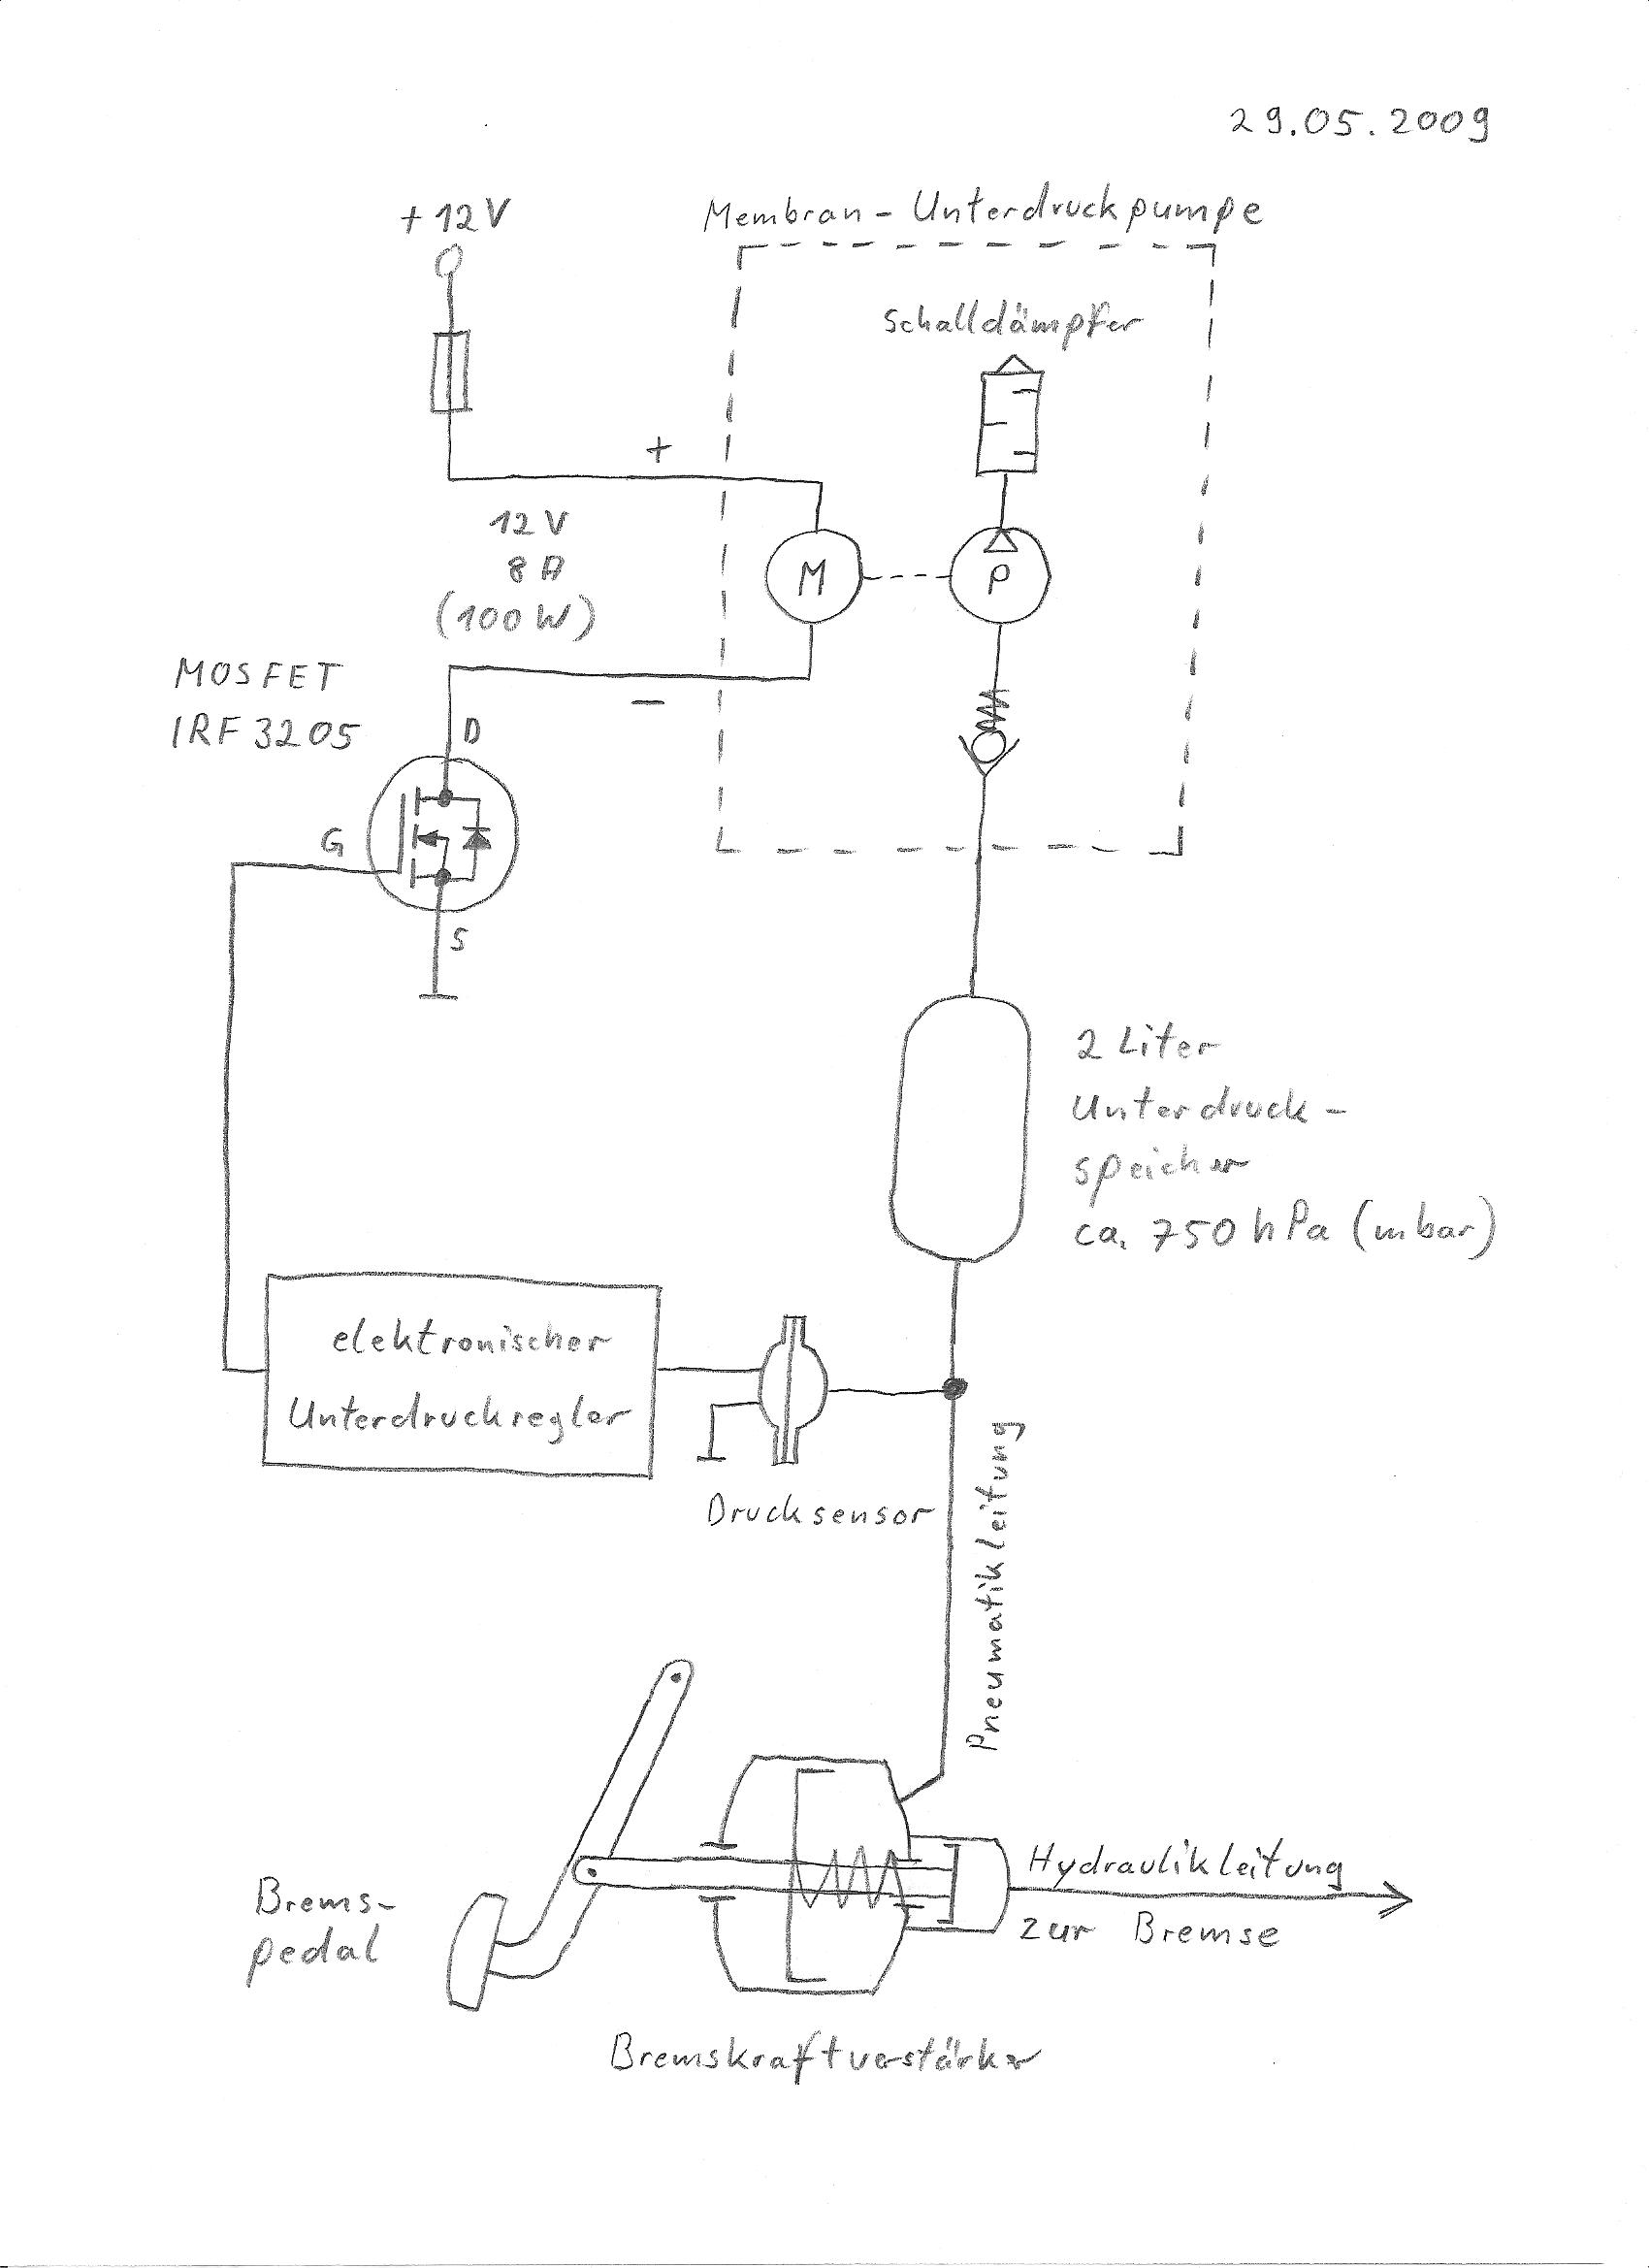 29.05.2009
+12V
Membran-Unterdruckpumpe
Schalldämpfer
+
12V
8A
(100W)
M
P
MOSFET
IRF3205
−
D
G
S
2 Liter
Unterdruck-
speicher
ca. 750 hPa (mbar)
elektronischer
Unterdruckregler
Drucksensor
Pneumatikleitung
Brems-
pedal
Hydraulikleitung
zur Bremse
Bremskraftverstärker